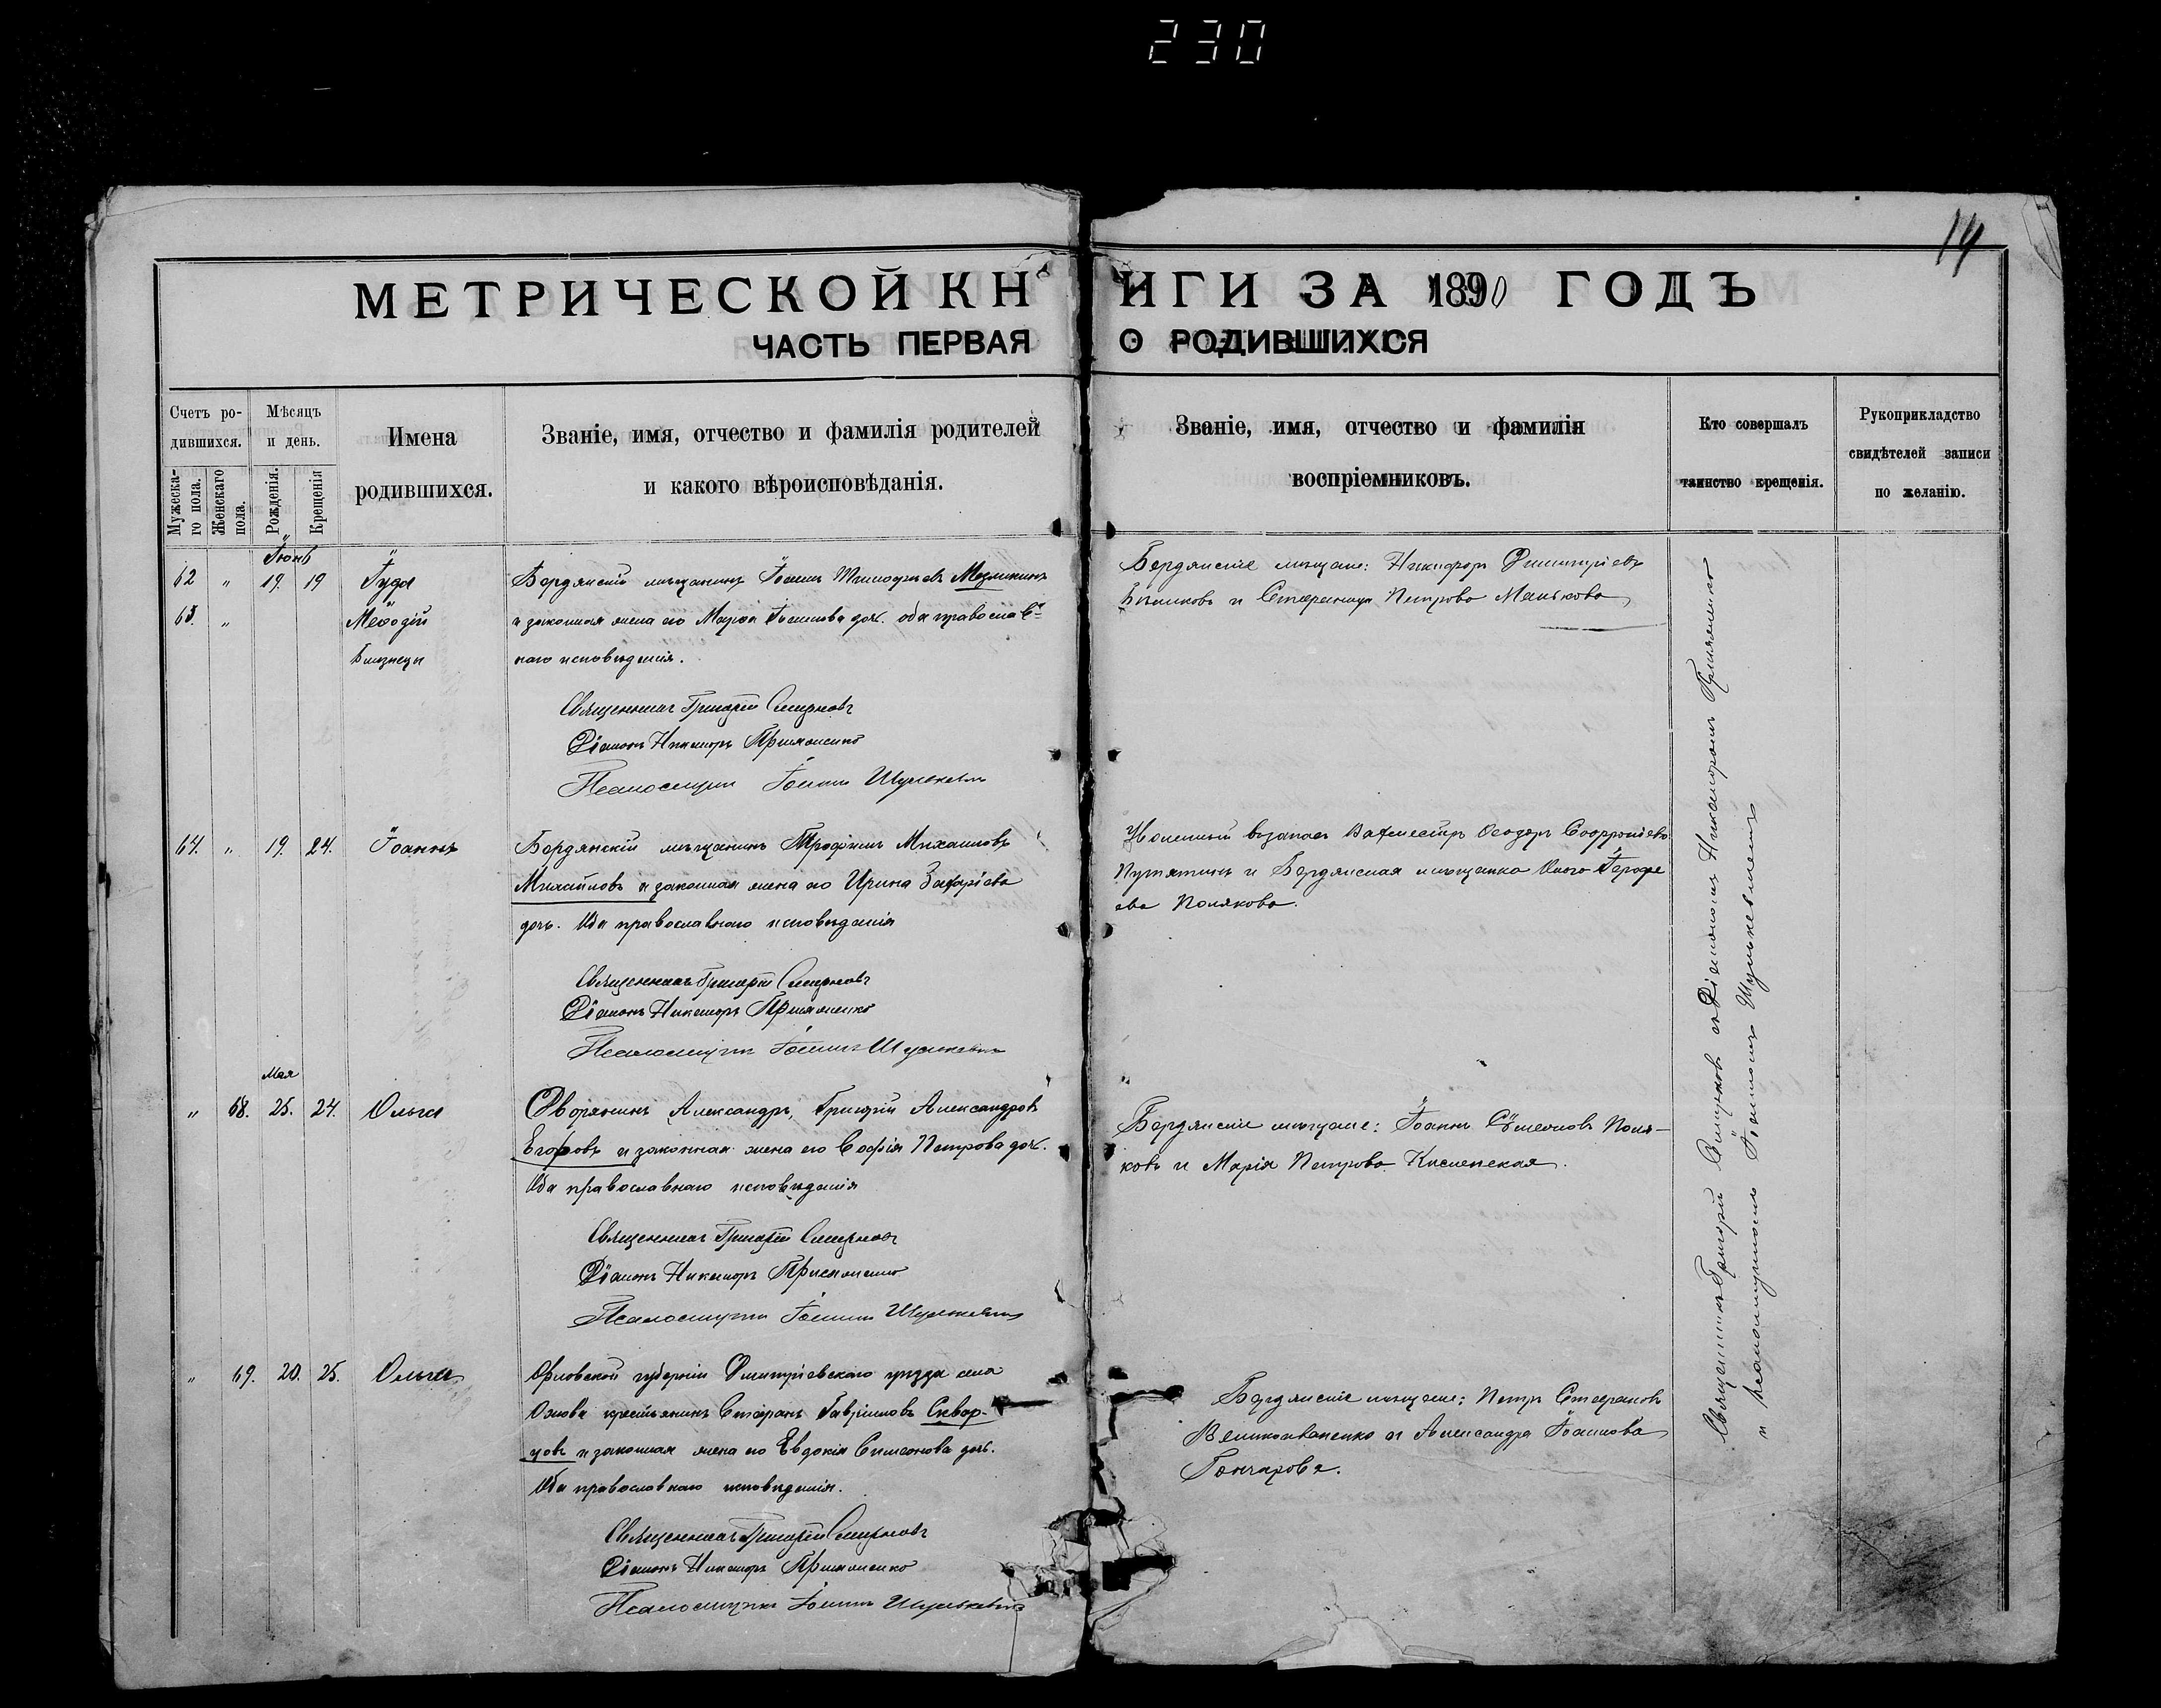 230
14
МЕТРИЧЕСКОЙ КНИГИ ЗА 1890 ГОДЪ
ЧАСТЬ ПЕРВАЯ О РОДИВШИХСЯ
Счетъ ро-
дившихся.
Мужеска-
го пола.
Женскаго
пола.
Мѣсяцъ
и день.
Рожденія.
Крещенія
Имена
родившихся.
Званіе, имя, отчество и фамилія родителей
и какого вѣроисповѣданія.
Званіе, имя, отчество и фамилія
воспріемниковъ.
Кто совершалъ
таинство крещенія.
Рукоприкладство
свидѣтелей записи
по желанію.
Іюнь
62 " 19. 19 Іуда
63. " Меѳодій
Близнецы
Бердянскій мѣщанинъ Іоаннъ
и законная жена его Марѳа Іоаннова доч. оба православ-
наго исповѣданія.
Священникъ Григорій Смирновъ
Діаконъ Никаноръ Прияженко
Псаломщикъ Іоаннъ Шулькевичъ
Бердянскіе мѣщане: Никифоръ Димитріевъ
и Стефанида Петрова Манькова
64. " 19. 24. Іоаннъ
Бердянскій мѣщанинъ Трофимъ Михаиловъ
Михайловъ и законная жена его Ирина Захаріева
доч. Оба православнаго исповѣданія
Священникъ Григорій Смирновъ
Діаконъ Никаноръ Прияженко
Псаломщикъ Іоаннъ Шулькевичъ
Уволенный въ запасъ Вахмистръ Ѳеодоръ Софроніевъ
Путятинъ и Бердянская мѣщанка
Полякова.
Мая
" 68. 25. 24. Ольга
Дворянинъ Александръ, Григорій Александровъ
Егоровъ и законная жена его Софія Петрова доч.
Оба православнаго исповѣданія
Священникъ Григорій Смирновъ
Діаконъ Никаноръ Прияженко
Псаломщикъ Іоаннъ Шулькевичъ
Бердянскіе мѣщане: Іоаннъ Сѵмеоновъ Поля-
ковъ и Марія Петрова
" 69. 20. 25. Ольга
Орловской губерніи Димитріевскаго уѣзда села
крестьянинъ Стефанъ Гавріиловъ Сквор-
цовъ и законная жена его Евдокія Симеонова доч.
Оба православнаго исповѣданія.
Священникъ Григорій Смирновъ
Діаконъ Никаноръ Прияженко
Псаломщикъ Іоаннъ Шулькевичъ
Бердянскіе мѣщане: Петръ Стефановъ
Великоиваненко и Александра Іоаннова
Гончарова.
Священникъ Григорій Смирновъ съ Діакономъ Никаноромъ Прияженко
и псаломщикомъ Іоанномъ Шулькевичемъ